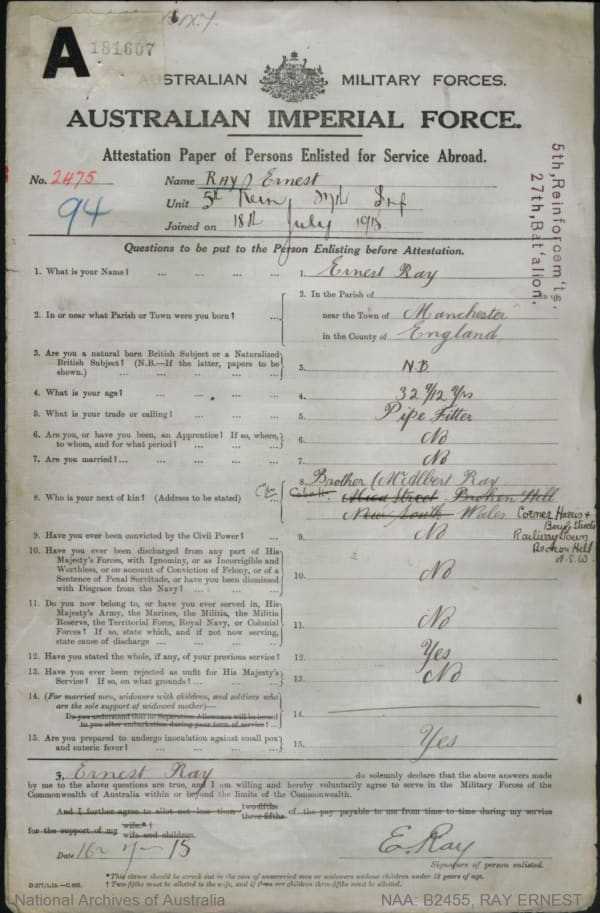 A 181607
AUSTRALIAN MILITARY FORCES.
AUSTRALIAN IMPERIAL FORCE.
Attestation Paper of Persons Enlisted for Service Abroad.
5th, Reinforcem'ts.
27th, Bat'alion.
No. 2475 Name RAY Ernest
94
Unit 5th Rein 27th Inf
Joined on 18th July 1915
Questions to be put to the Person Enlisting before Attestation.
1. What is your Name? ... ... ... 1. Ernest Ray
2. In or near what Parish or Town were you born? ...
2. In the Parish of in
near the Town of Manchester
in the County of England
3. Are you a natural born British Subject or a Naturalized
British Subject? (N.B.—If the latter, papers to be
shown.) ... ... ... ... 3. N.B.
4. What is your age? ... ... ... 4. 32 Yrs
5. What is your trade or calling? ... ... 5. Pipe Fitter
6. Are you, or have you been, an Apprentice? If so, where,
to whom, and for what period? ... ... ... 6. No
7. Are you married?... ... ... ... 7. No
8. Who is your next of kin? (Address to be stated) ...
8. Brother Albert Ray
Cobalt Street Broken Hill
New South Wales Corner Harris &
Railway Town
Broken Hill
N.S.W.
9. Have you ever been convicted by the Civil Power? ... 9. No
10. Have you ever been discharged from any part of His
Majesty's Forces, with Ignominy, or as Incorrigible and
Worthless, or on account of Conviction of Felony, or of a
Sentence of Penal Servitude, or have you been dismissed
with Disgrace from the Navy? ... ... ... 10. No
11. Do you now belong to, or have you ever served in, His
Majesty's Army, the Marines, the Militia, the Militia
Reserve, the Territorial Force, Royal Navy, or Colonial
Forces? If so, state which, and if not now serving,
state cause of discharge ... ... ... 11. No
12. Have you stated the whole, if any, of your previous service? 12. Yes
13. Have you ever been rejected as unfit for His Majesty's
Service? If so, on what grounds? ... ... ... 13. No
14. (For married men, widowers with children, and soldiers who
are the sole support of widowed mother)—
Do you understand that no Separation Allowance will be issued
to you after embarkation during your term of service? ... 14.
15. Are you prepared to undergo inoculation against small pox
and enteric fever? ... ... ... ... 15. Yes
I, Ernest Ray do solemnly declare that the above answers made
by me to the above questions are true, and I am willing and hereby voluntarily agree to serve in the Military Forces of the
Commonwealth of Australia within or beyond the limits of the Commonwealth.
And I further agree to allot not less than two-fifths three-fifths of the pay payable to me from time to time during my service
for the support of my wife.*† wife and children.
Date 16 - 7 - 15 E. Ray
Signature of person enlisted.
*This clause should be struck out in the case of unmarried men or widowers without children under 18 years of age.
† Two-fifths must be allotted to the wife, and if there are children three-fifths must be allotted.
National Archives of Australia NAA: B2455, RAY ERNEST